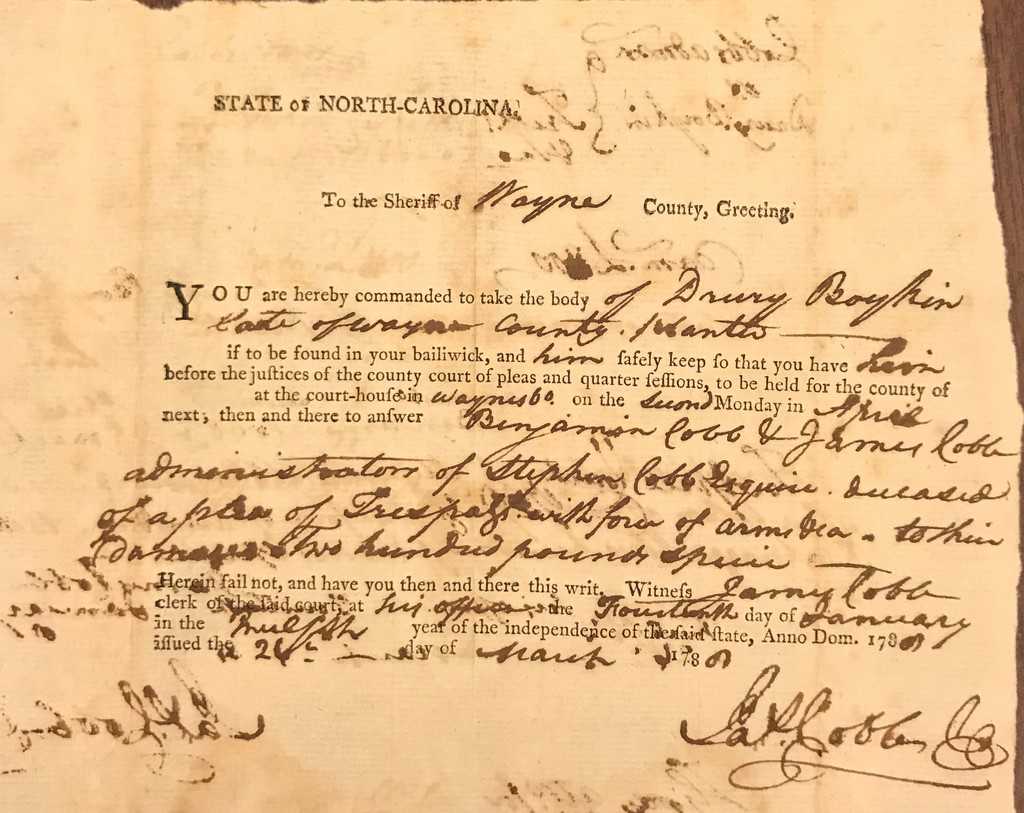 STATE of NORTH-CAROLINA.
To the Sheriff of Wayne County, Greeting.
YOU are hereby commanded to take the body of Drury Boykin
Late of Wayne County. Planter
if to be found in your bailiwick, and him safely keep ſo that you have him
before the juſtices of the county court of pleas and quarter ſeſſions, to be held for the county of
at the court-houſe in Waynesbo. on the second Monday in April
next, then and there to anſwer Benjamin Cobb & James Cobb
administrators of Stephen Cobb Esquire deceased
of a plea of Trespass with force of arms &ca to their
damage Two hundred pounds specie
Herein fail not, and have you then and there this writ. Witneſs James Cobb
clerk of the ſaid court, at his office the Fourteenth day of January
in the Twelfth year of the independence of the ſaid ſtate, Anno Dom. 1788
iſſued the 26th day of March 1788
Jas. Cobb